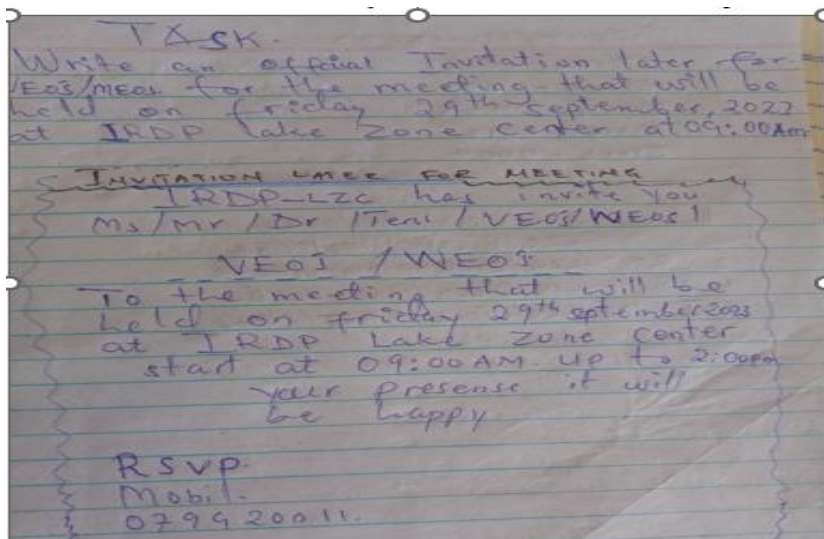 TASK.
Write an official Invitation later for
VEOs/MEOs for the meeting that will be
held on friday 29th september, 2023
at IRDP Lake Zone center at 09:00Am
INVITATION LATER FOR MEETING
IRDP-LZC has invite you
Ms/Mr/Dr /Teni / VEOs/WEOs/
VEOS /WEOS
To the meeting that will be
held on friday 29th september2023
at IRDP Lake Zone center
start at 09:00AM up to 2:00pm
your presense it will
be happy
RSVP.
Mobil-
0799 20011.